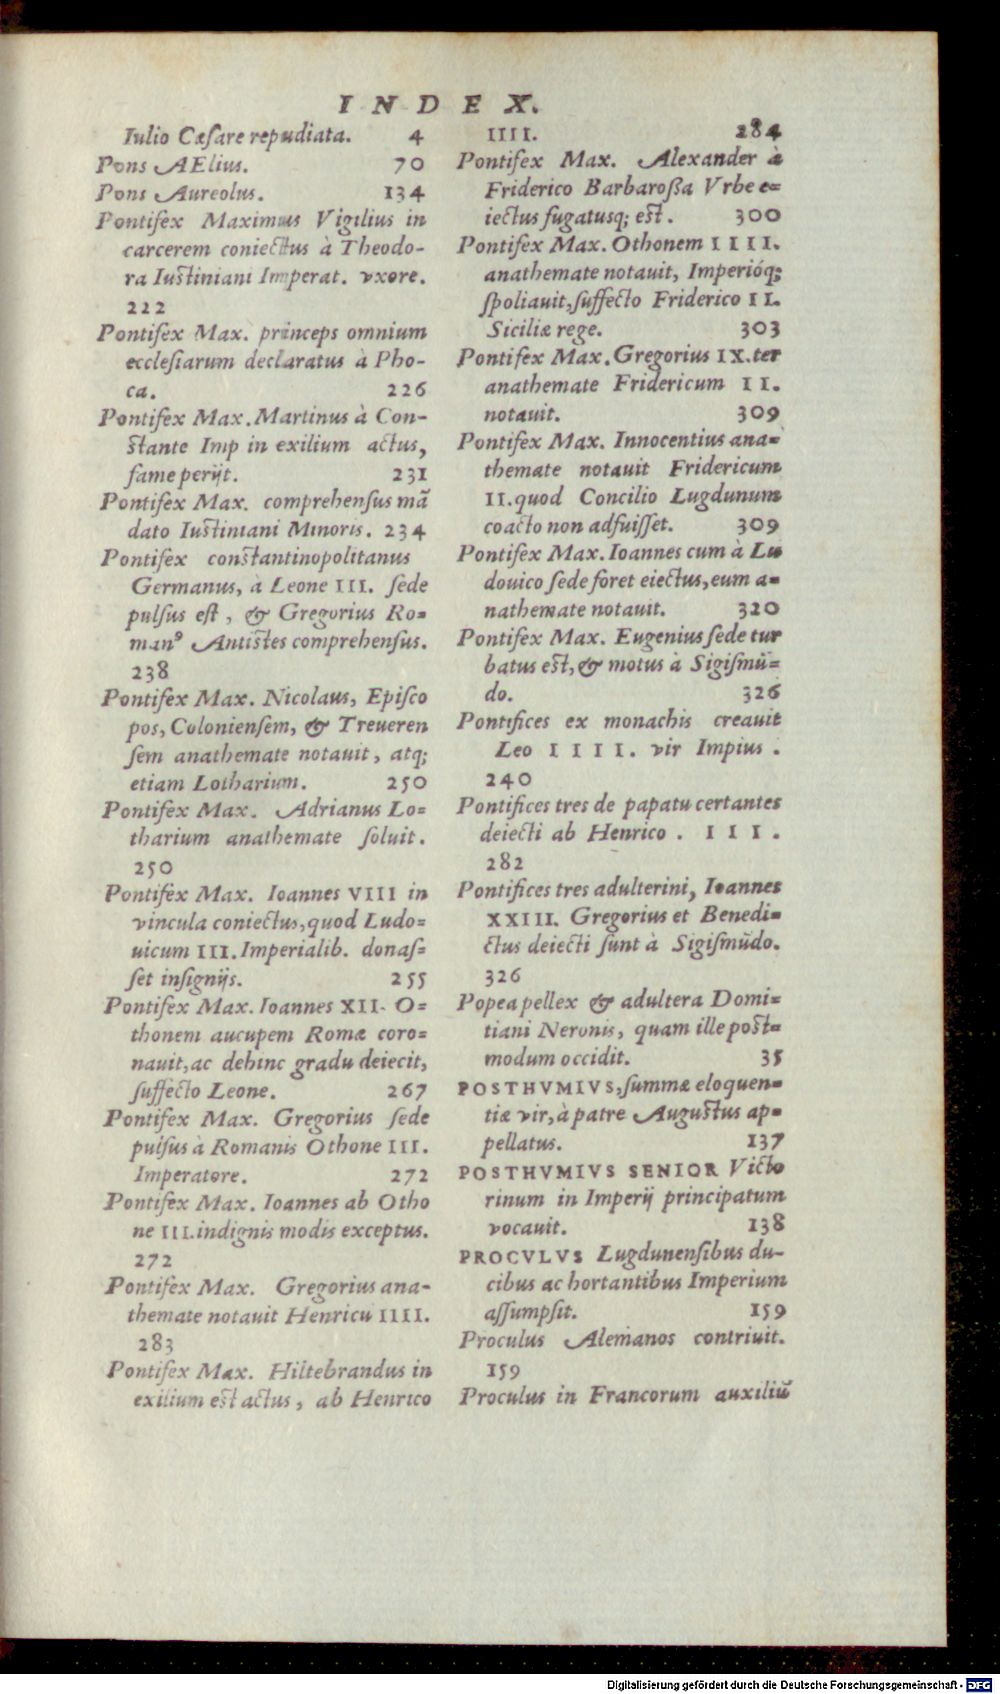 INDEX.
Iulio Cæsare repudiata. 4
Pons AElius. 70
Pons Aureolus. 134
Pontifex Maximus Vigilius in
carcerem coniectus à Theodo-
ra Iustiniani Imperat. vxore.
222
Pontifex Max. princeps omnium
ecclesiarum declaratus à Pho-
ca. 226
Pontifex Max. Martinus à Con-
stante Imp in exilium actus,
fame perijt. 231
Pontifex Max. comprehensus mã
dato Iustiniani Minoris. 234
Pontifex constantinopolitanus
Germanus, à Leone III. sede
pulsus est, & Gregorius Ro=
manꝰ Antistes comprehensus.
238
Pontifex Max. Nicolaus, Episco
pos, Coloniensem, & Treueren
sem anathemate notauit, atq;
etiam Lotharium. 250
Pontifex Max. Adrianus Lo=
tharium anathemate soluit.
250
Pontifex Max. Ioannes VIII in
vincula coniectus, quod Ludo=
uicum III. Imperialib. donas=
set insignijs. 255
Pontifex Max. Ioannes XII. O=
thonem aucupem Romæ coro=
nauit, ac dehinc gradu deiecit,
suffecto Leone. 267
Pontifex Max. Gregorius sede
pulsus à Romanis Othone III.
Imperatore. 272
Pontifex Max. Ioannes ab Otho
ne III. indignis modis exceptus.
272
Pontifex Max. Gregorius ana-
themate notauit Henricu IIII.
283
Pontifex Max. Hiltebrandus in
exilium est actus, ab Henrico
IIII. 284
Pontifex Max. Alexander à
Friderico Barbaroßa Vrbe e=
iectus fugatusq; est. 300
Pontifex Max. Othonem IIII.
anathemate notauit, Imperióq;
spoliauit, suffecto Friderico II.
Siciliæ rege. 303
Pontifex Max. Gregorius IX. ter
anathemate Fridericum II.
notauit. 309
Pontifex Max. Innocentius ana=
themate notauit Fridericum
II. quod Concilio Lugdunum
coacto non adfuisset. 309
Pontifex Max. Ioannes cum à Lu
douico sede foret eiectus, eum a=
nathemate notauit. 320
Pontifex Max. Eugenius sede tur
batus est, & motus à Sigismũ=
do. 326
Pontifices ex monachis creauit
Leo IIII. vir Impius.
240
Pontifices tres de papatu certantes
deiecti ab Henrico. III.
282
Pontifices tres adulterini, Ioannes
XXIII. Gregorius et Benedi=
ctus deiecti sunt à Sigismũdo.
326
Popea pellex & adultera Domi=
tiani Neronis, quam ille post=
modum occidit. 35
POSTHVMIVS, summæ eloquen=
tiæ vir, à patre Augustus ap=
pellatus. 137
POSTHVMIVS SENIOR Victo
rinum in Imperij principatum
vocauit. 138
PROCVLVS Lugdunensibus du-
cibus ac hortantibus Imperium
assumpsit. 159
Proculus Alemanos contriuit.
159
Proculus in Francorum auxiliũ
Digitalisierung gefördert durch die Deutsche Forschungsgemeinschaft - DFG